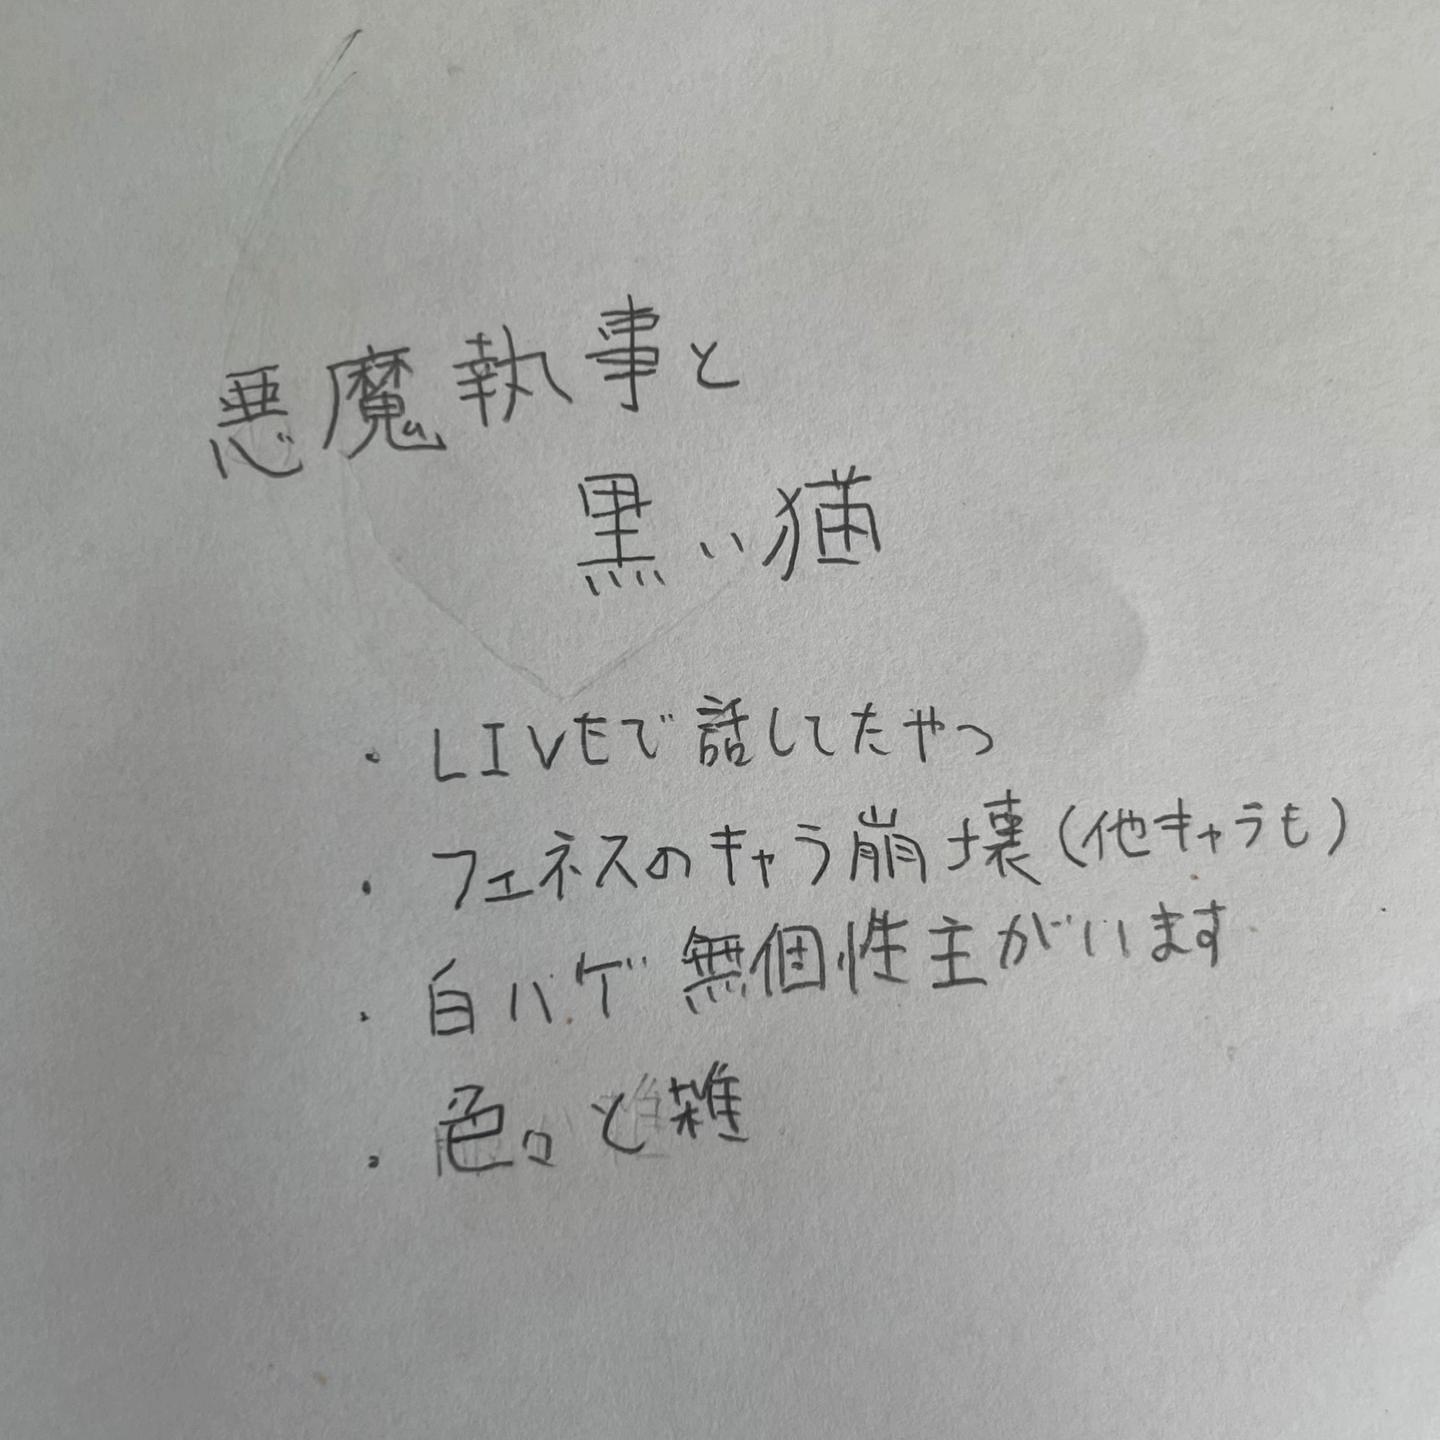 悪魔執事と
黒い猫
・LIVEで話してたやつ
・フェネスのキャラ崩壊(他キャラも)
・白ハゲ無個性主がいます
・色々と雑